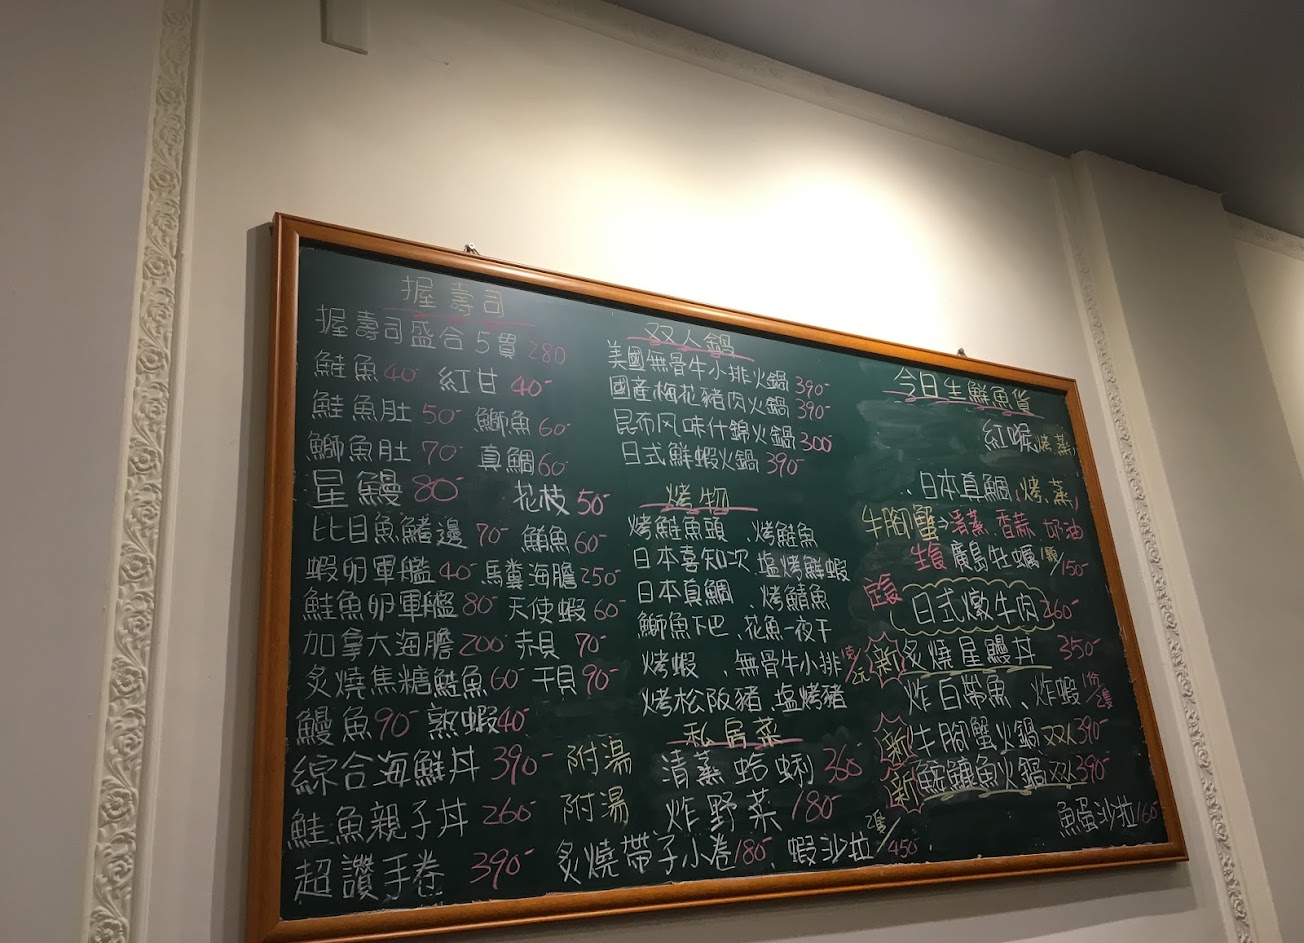 握壽司
握壽司盛合 5貫 280
鮭魚 40- 紅甘 40-
鮭魚肚 50- 鰤魚 60-
鰤魚肚 70- 真鯛 60-
星鰻 80- 花枝 50-
比目魚鰭邊 70- 鮪魚 60-
蝦卵軍艦 40- 馬糞海膽 250-
鮭魚卵軍艦 80- 天使蝦 60-
加拿大海膽 200- 赤貝 70-
炙燒焦糖鮭魚 60- 干貝 90-
鰻魚 90- 熟蝦 40-
綜合海鮮丼 390- 附湯
鮭魚親子丼 260- 附湯
超讚手卷 390-
双人鍋
美國無骨牛小排火鍋 390-
國產梅花豬肉火鍋 390-
昆布风味什錦火鍋 300-
日式鮮蝦火鍋 390-
烤物
烤鮭魚頭、烤鮭魚
日本喜知次、塩烤鮮蝦
日本真鯛、烤鯖魚
鰤魚下巴、花魚一夜干
烤蝦、無骨牛小排
烤松阪豬 塩烤豬
私房菜
清蒸蛤蜊 360-
炸野菜 180-
炙燒帶子小卷 180-、蝦沙拉 2隻/450-
今日生鮮魚貨
紅喉 烤.蒸
日本真鯛,烤.蒸
牛腳蟹→清蒸.香蒜.奶油
生食 廣島牡蠣 顆/150-
日式燉牛肉 260-
新 炙燒星鰻丼 350-
炸白帶魚、炸蝦 份/2隻
新 牛腳蟹火鍋 双人 390-
新 鱘鰉魚火鍋 双人 390-
魚蛋沙拉 160-